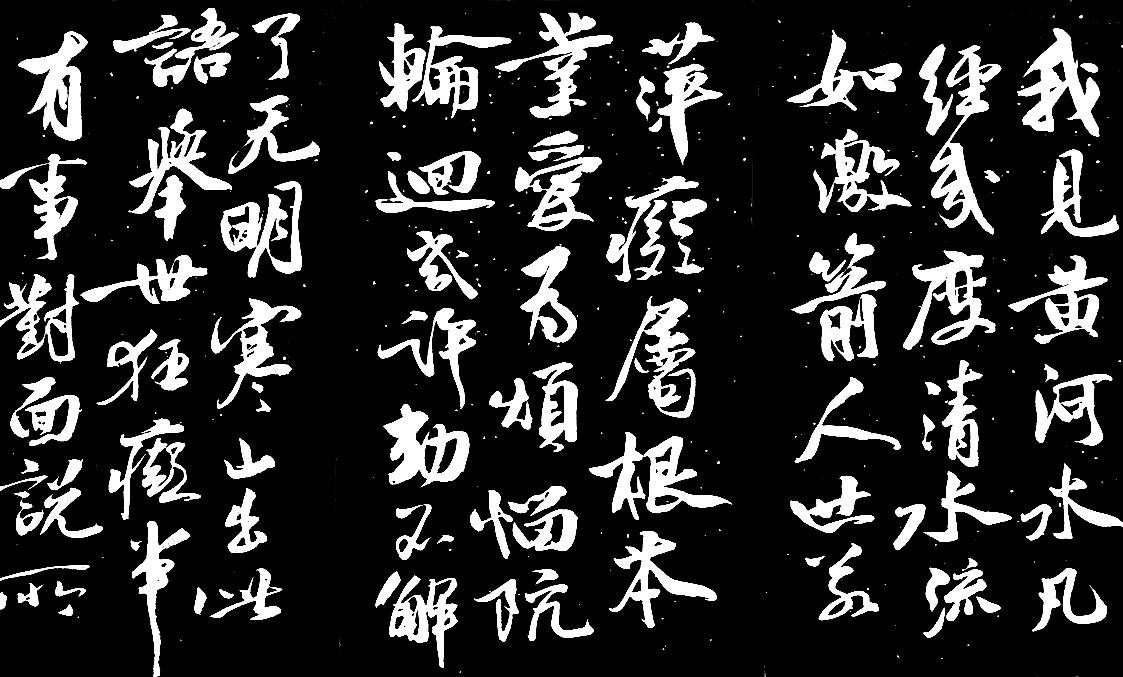 我見黃河水凡
經幾度清水流
如激箭人世若
萍癡屬根本
業愛為煩惱阬
輪迴幾許劫不解
了无明寒山出此
語舉世狂癡半
有事對面說所